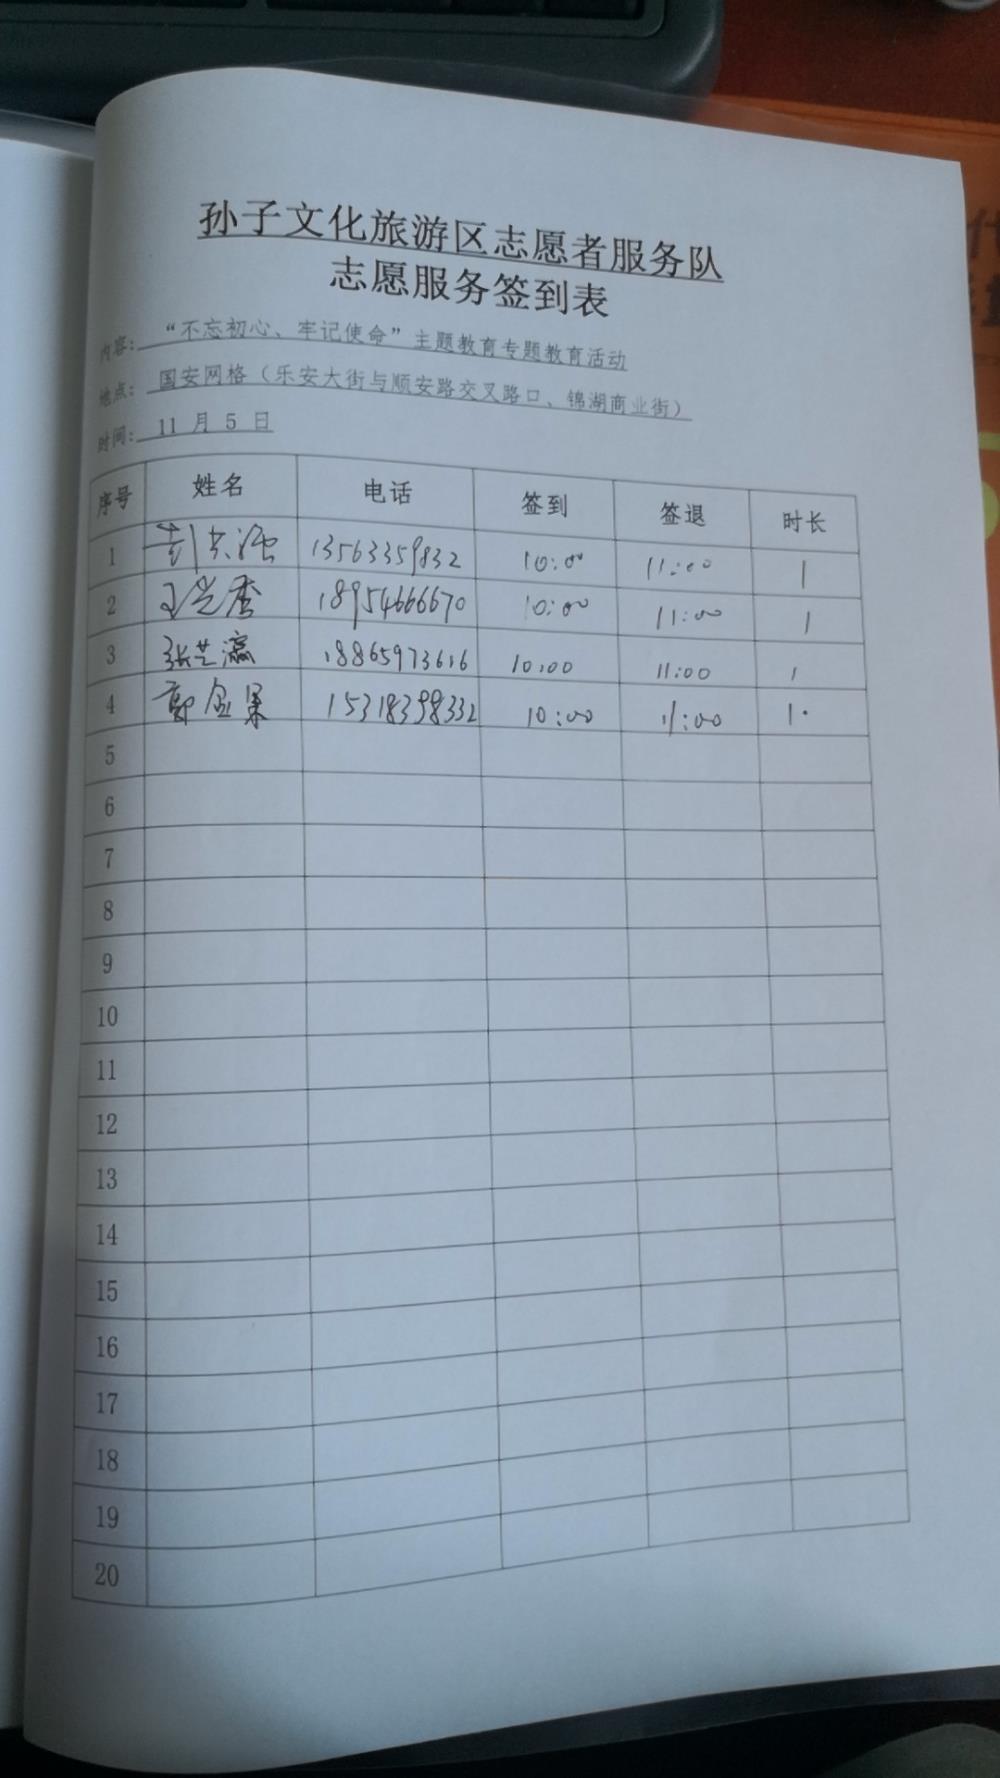 孙子文化旅游区志愿者服务队
志愿服务签到表
内容: “不忘初心、牢记使命”主题教育专题教育活动
地点: 国安网格（乐安大街与顺安路交叉路口、锦湖商业街）
时间: 11 月 5 日
序号 姓名 电话 签到 签退 时长
1 13563359832 10:00 11:00 1
2 18954666670 10:00 11:00 1
3 张芝瀛 18865973616 10:00 11:00 1
4 郭金果 15318398332 10:00 11:00 1.
5
6
7
8
9
10
11
12
13
14
15
16
17
18
19
20